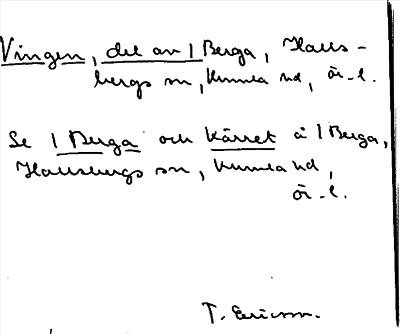 Vingen, del av 1 Berga, Halls-
bergs sn, Kumla hd, Ör. l.
Se 1 Berga och Kärret å 1 Berga,
Hallsbergs sn, Kumla hd,
Ör. l.
T. Ericson.